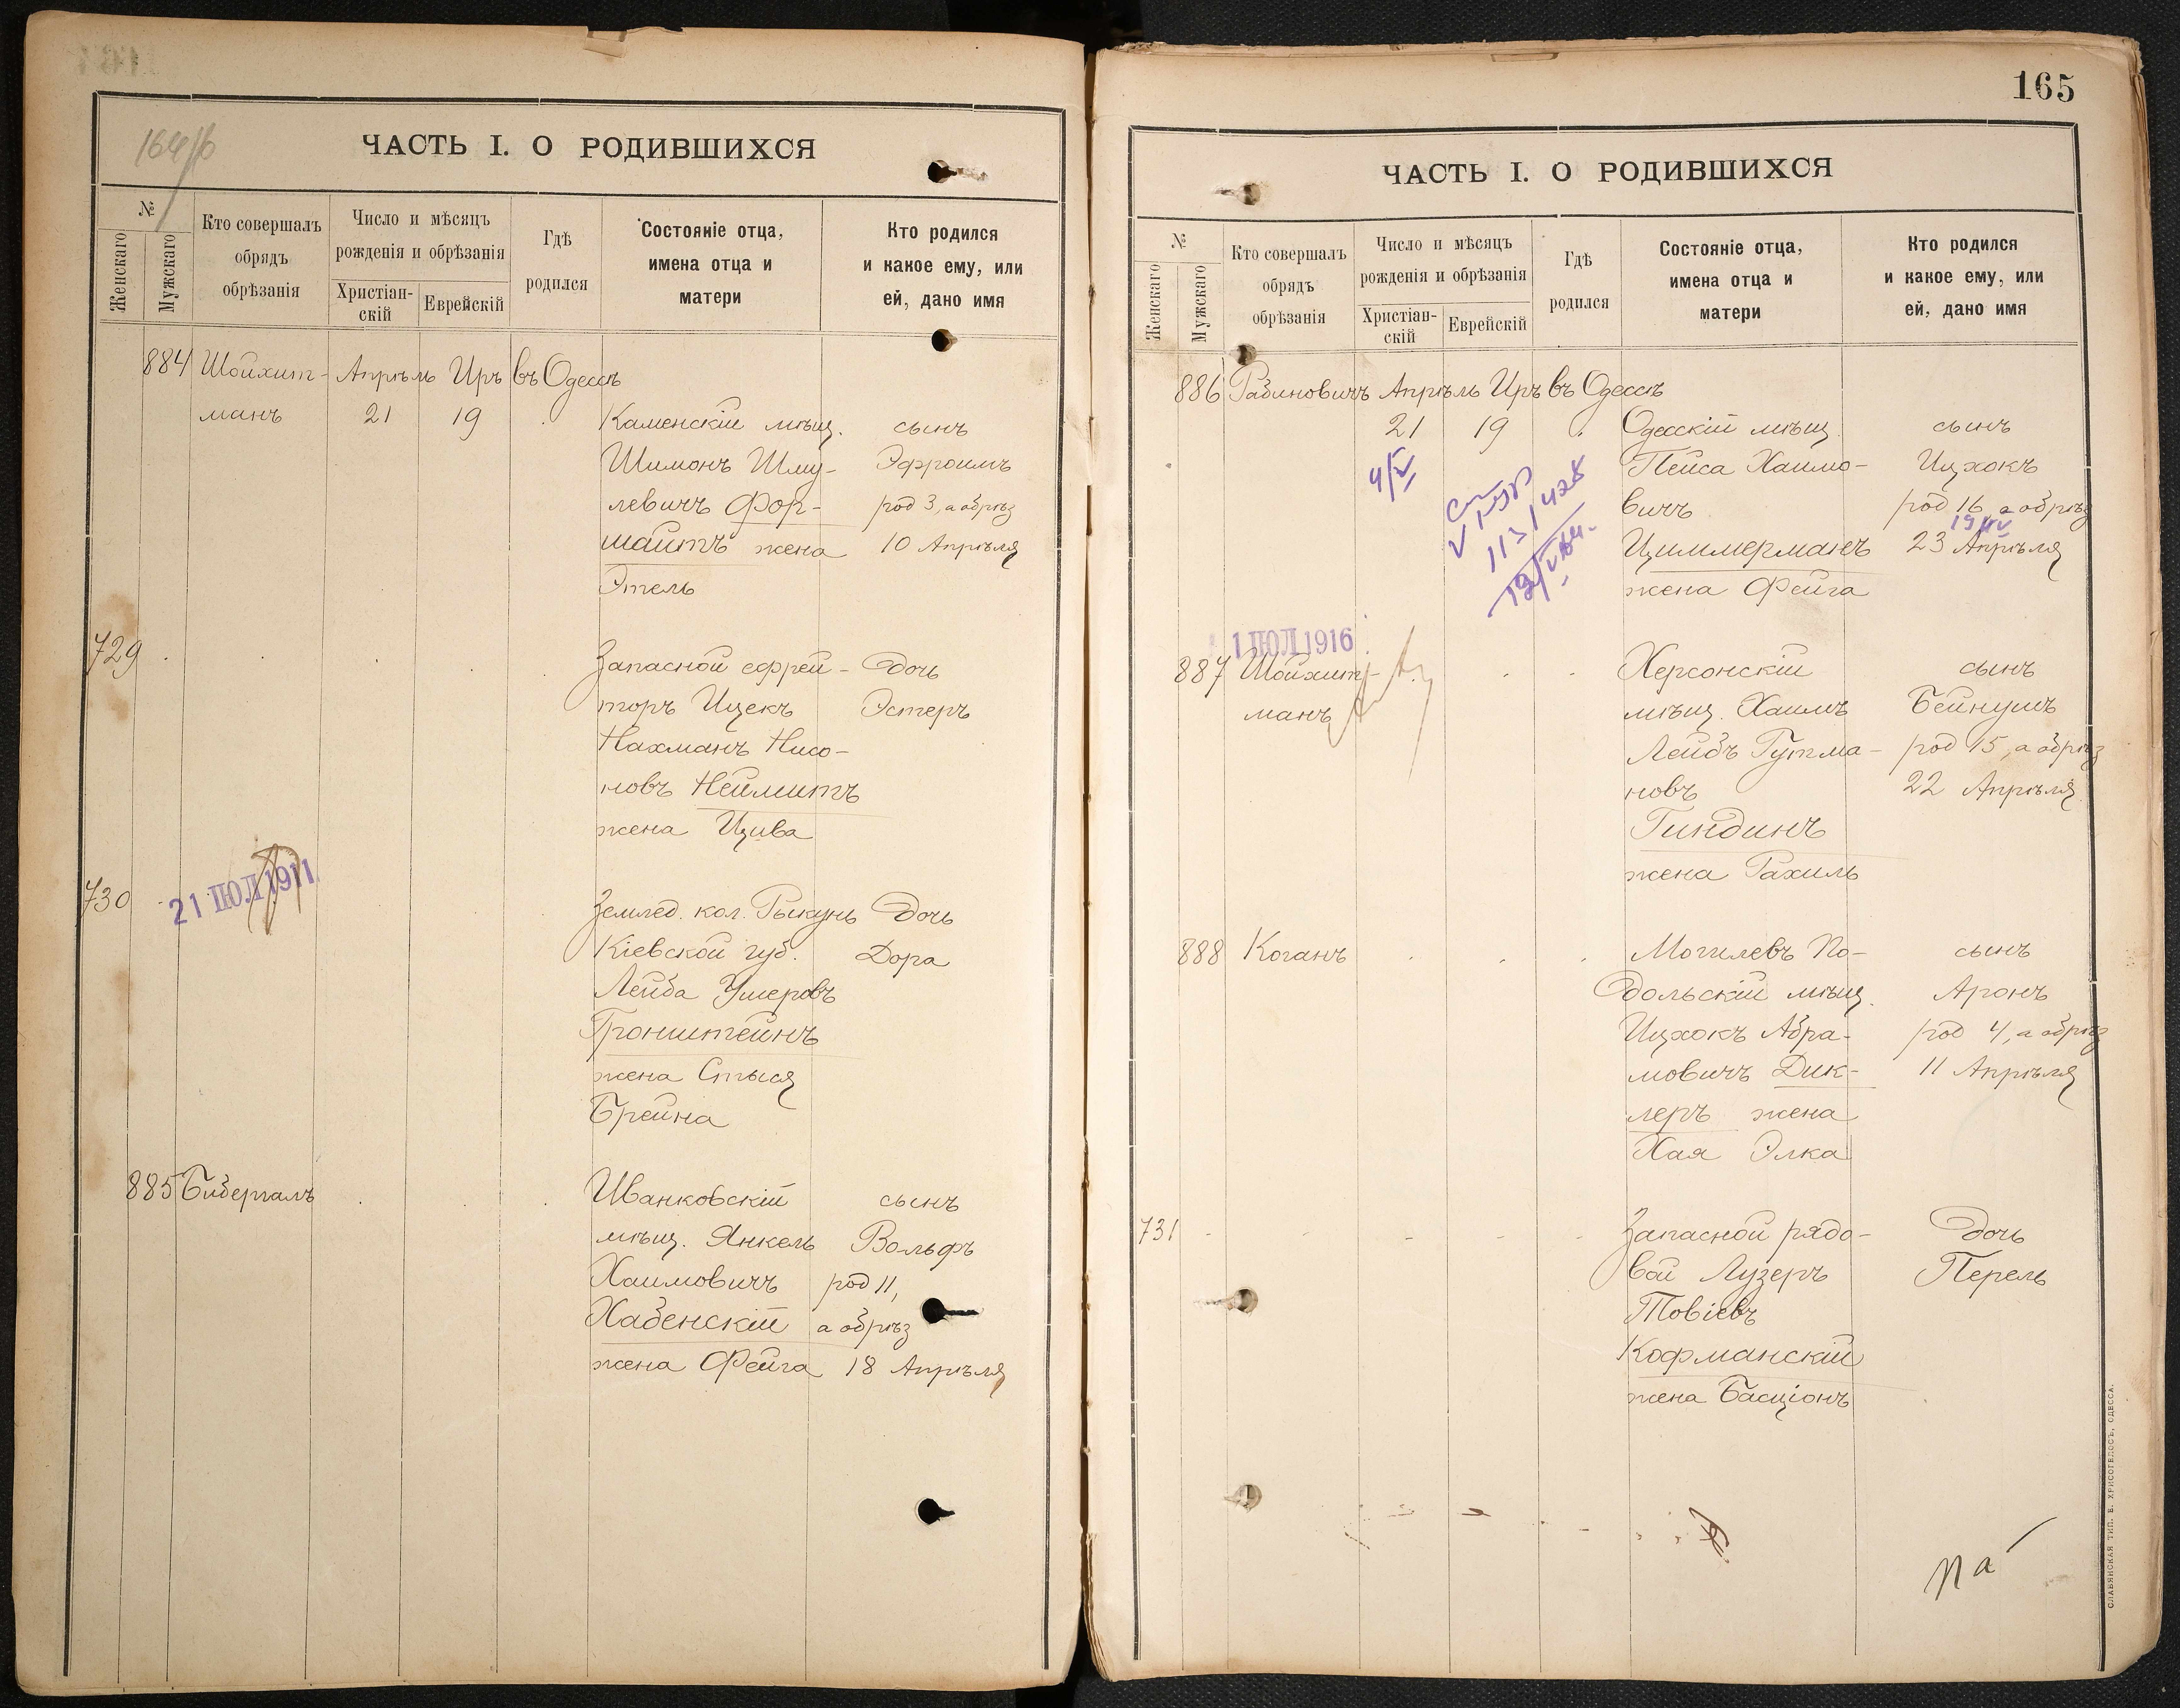 164/б
ЧАСТЬ I. О РОДИВШИХСЯ
№
Женскаго
Мужскаго
Кто совершалъ
обрядъ
обрѣзанія
Число и мѣсяцъ
рожденія и обрѣзанія
Христіан-
скій
Еврейскій
Гдѣ
родился
Состояніе отца,
имена отца и
матери
Кто родился
и какое ему, или
ей, дано имя
884 Шойхит- Апрѣль Иръ въ Одессѣ
манъ 21 19 Каменскій мѣщ. сынъ
Шимонъ Шму- Эфроимъ
левичъ Фор- род 3, а обрѣз
шайтъ жена 10 Апрѣля
Этель
729 Запасной ефрей- дочь
торъ Ицекъ Эстеръ
Нахманъ Нисо-
новъ Неймитъ
жена Цива
21 ІЮЛ 1911
730 Землед. кол. Рыкунь дочь
Кіевской губ. Дора
Лейба Ушеровъ
Гронштейнъ
жена Стыся
Брейна
885 Бибергалъ Иванковскій сынъ
мѣщ. Янкель Вольфъ
Хаимовичъ род 11,
Хабенскій а обрѣз
жена Фейга 18 Апрѣля
165
ЧАСТЬ I. О РОДИВШИХСЯ
№
Женскаго
Мужскаго
Кто совершалъ
обрядъ
обрѣзанія
Число и мѣсяцъ
рожденія и обрѣзанія
Христіан-
скій
Еврейскій
Гдѣ
родился
Состояніе отца,
имена отца и
матери
Кто родился
и какое ему, или
ей, дано имя
886 Рабиновичъ Апрѣль Иръ въ Одессѣ
21 19 Одесскій мѣщ. сынъ
4/V Пейса Хаимо- Ицхокъ
вичъ род 16, а обрѣз
Циммерманъ 23 Апрѣля
жена Фейга
1 ІЮЛ 1916
887 Шойхит- Херсонскій сынъ
манъ мѣщ. Хаимъ Бейнушъ
Лейбъ Гутма- род 15, а обрѣз
новъ 22 Апрѣля
Гиндинъ
жена Рахиль
888 Коганъ Могилевъ По- сынъ
дольскій мѣщ. Аронъ
Ицхокъ Абра- род 4, а обрѣз
мовичъ Дик- 11 Апрѣля
леръ жена
Хая Элка
731 Запасной рядо- дочь
вой Лузеръ Перель
Товіевъ
Кофманскій
жена Басціонъ
СЛАВЯНСКАЯ ТИП. Е. ХРИСОГЕЛОСЪ, ОДЕССА.